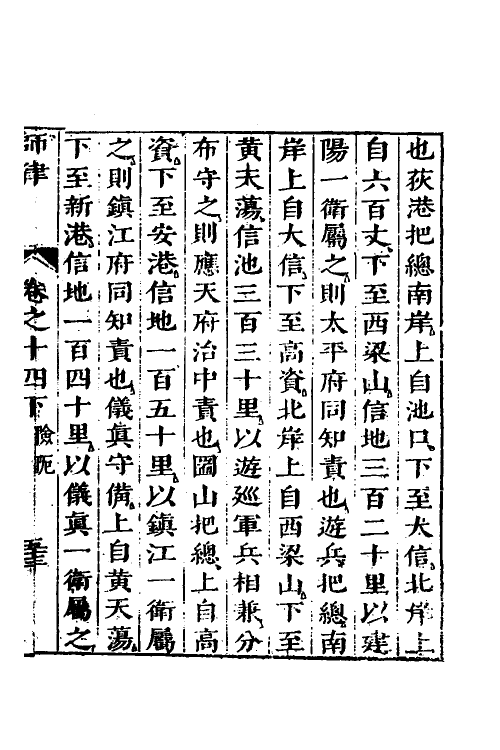 也荻港把總南岸上自池口下至大信北岸上
自六百丈下至西梁山信地三百二十里以建
陽一衛屬之則太平府同知責也遊兵把總南
岸上自大信下至高資北岸上自西梁山下至
黃天蕩信池三百三十里以遊巡軍兵相兼分
布守之則應天府治中責也圌山把總上自高
資下至安港信地一百五十里以鎮江一衛屬
之則鎮江府同知責也儀眞守備上自黃天蕩
下至新港信地一百四十里以儀眞一衛屬之
師律 卷之十四下 險阨